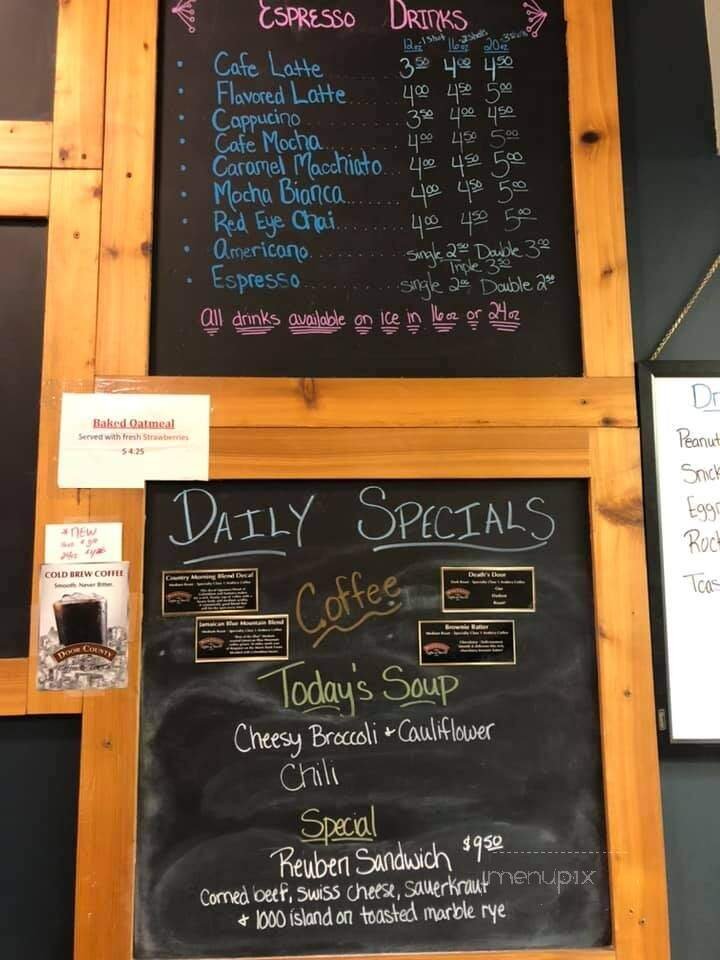 Espresso Drinks
12oz 1shot 16oz 2shots 20oz 3shots
• Cafe Latte ........ 3 50 4 00 4 50
• Flavored Latte ....... 4 00 4 50 5 00
• Cappucino ........ 3 50 4 00 4 50
• Cafe Mocha ........ 4 00 4 50 5 00
• Caramel Macchiato ... 4 00 4 50 5 00
• Mocha Bianca ....... 4 00 4 50 5 00
• Red Eye Chai ....... 4 00 4 50 5 00
• Americano ........ single 2 50 Double 3 00
Triple 3 50
• Espresso ........ single 2 00 Double 2 50
All drinks available on ice in 16oz or 24oz
Baked Oatmeal
Served with fresh Strawberries
$ 4.25
Daily Specials
* NEW
COLD BREW COFFEE
Smooth. Never Bitter.
DOOR COUNTY
Coffee
Country Morning Blend Decaf
Jamaican Blue Mountain Blend
Death's Door
Brownie Batter
Today's Soup
Cheesy Broccoli + Cauliflower
Chili
Special
Reuben Sandwich $9 50
Corned beef, swiss cheese, sauerkraut
+ 1000 island on toasted marble rye
menupix
Dr
Peanut
Snick
Eggn
Rock
Toas